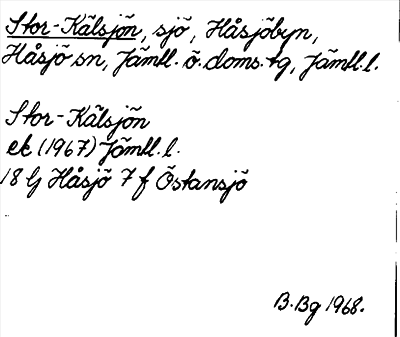 Stor-Kälsjön, sjö, Håsjöbyn,
Håsjö sn, Jämtl. ö. doms. tg, Jämtl. l.
Stor-Kälsjön
ek (1967) Jämtl. l.
18 G Håsjö 7 f Östansjö
B. Bg 1968.